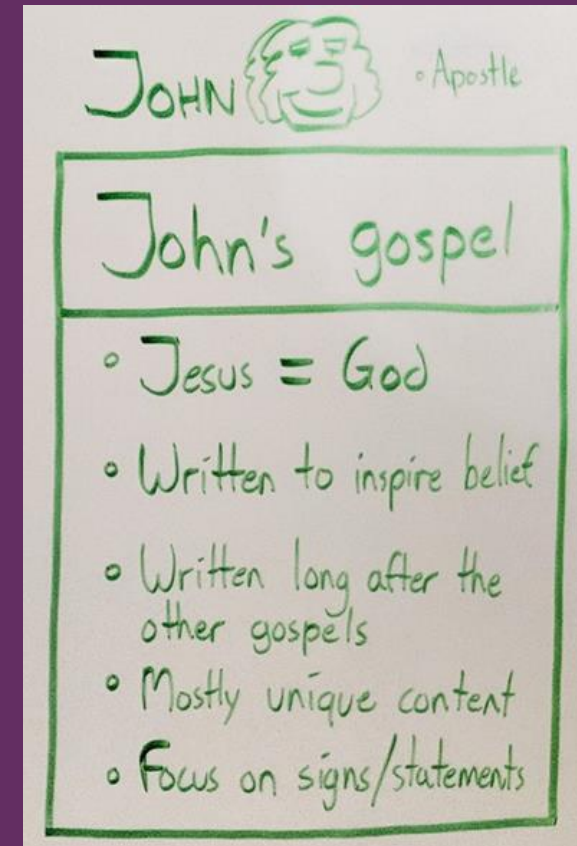 JOHN • Apostle
John's gospel
• Jesus = God
• Written to inspire belief
• Written long after the
other gospels
• Mostly unique content
• Focus on signs/statements